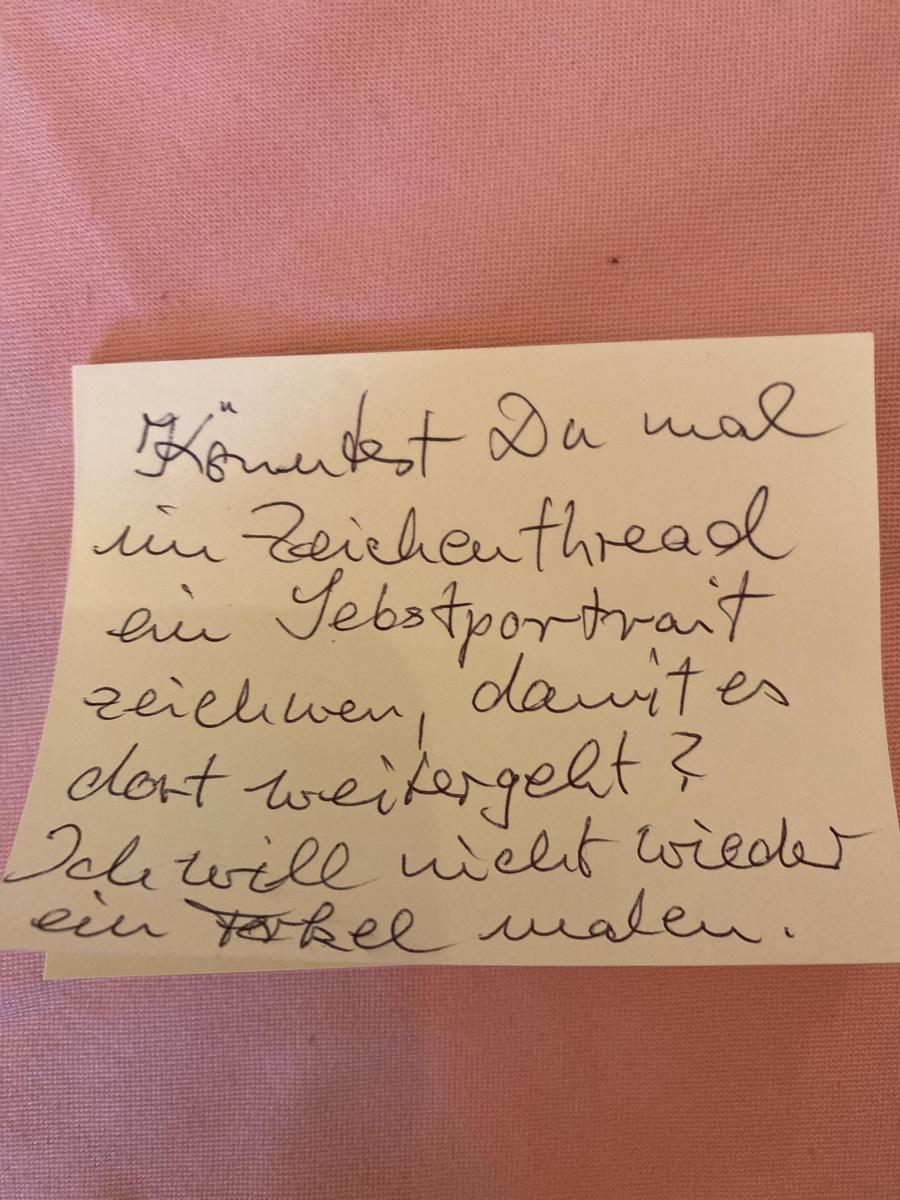 Könntest Du mal
im Zeichenthread
ein Sebstportrait
zeichnen, damit es
dort weitergeht?
Ich will nicht wieder
ein malen.